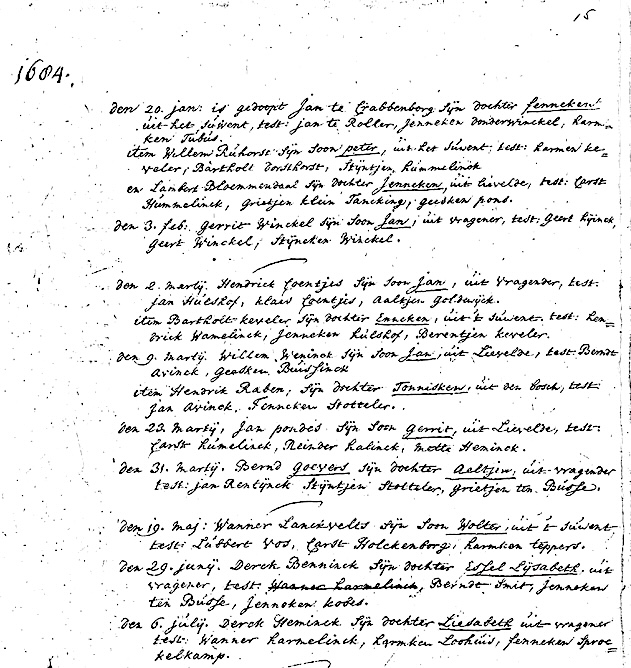 15
1684.
den 20. jan: is gedoopt Jan te Crabbenborg sijn dochter fenneken
uit het suwent, test: jan te Roller, Jenneken donderwinckel, harm-
ken Tubus.
item Willem Ruhorst sijn soon peter, uit het suwent, test: harmen ke-
veler, Bartholt dorsthorst, Stijntjen hummelinck
en Lambert Bloemmendaal sijn dochter Jenneken, uit lievelde, test: Carst
Hummelinck, Grietjen klein Tancking, geesken pons.
den 3. feb. Gerrit Winckel sijn soon Jan, uit vragener, test: Geert
Geert Winckel, Stijneken Winckel.
den 2. martij. Hendrick Coentjes sijn soon Jan, uit Vragender, test.
jan Hulshof, klaes Coentjes, Aaltjen Goldewijck.
item Bartholt keveler sijn dochter Enneken, uit 't suwent. test: hen=
drick Wamelinck, Jenneken hulshof, Berentjen keveler.
den 9. martij. Willem Weninck sijn soon Jan, uit Lievelde, test: Berndt
Avinck, Geesken Buissinck
item Hendrik Raben, sijn dochter Tonnisken, uit den bosch, test
jan Avinck, Fenneken Stotteler.
den 23. martij, Jan pondes sijn soon Gerrit, uit Lievelde, test:
Carst humelinck, Reinder halinck, Mette Heminck.
den 31. martij. Bernd goevers sijn dochter Aeltjen, uit vragender
test: jan Rentijnck Stijntjen Stotteler, grietjen ten Busse.
den 19. maj: Wanner Lanckvelts sijn soon Wolter, uit 't suwent
test: Lubbert Vos, Carst Holckenborg, harmken teppers.
den 29. junij. Derck Benninck sijn dochter Essel Lijsabeth uit
vragener, test. Wanner harmelinck, Berndt Smit, Jenneken
ten Busse, Jenneken kobes.
den 6. julij. Derck Heminck sijn dochter Liesabeth uit vragener
test: Wanner harmelinck, harmken Loohuis, fenneken Sproc=
kelkamp.